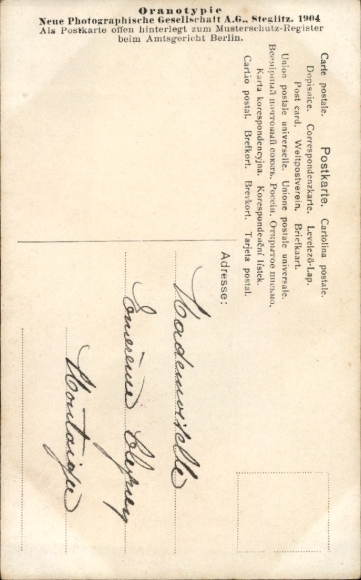 Oranotypie
Neue Photographische Gesellschaft A.G., Steglitz. 1904
Als Postkarte offen hinterlegt zum Musterschutz-Register
beim Amtsgericht Berlin.
Carte postale. Postkarte. Cartolina postale.
Dopisnice. Correspondenzkarte. Levelező-Lap.
Post card. Weltpostverein. Briefkaart.
Union postale universelle. Unione postale universale.
Всемірный почтовый союзъ. Россія. Открытое письмо.
Karta korespondencyjna. Korespondenční lístek.
Cartão postal. Brefkort. Brevkort. Tarjeta postal.
Adresse:
Mademoiselle
Montaigu